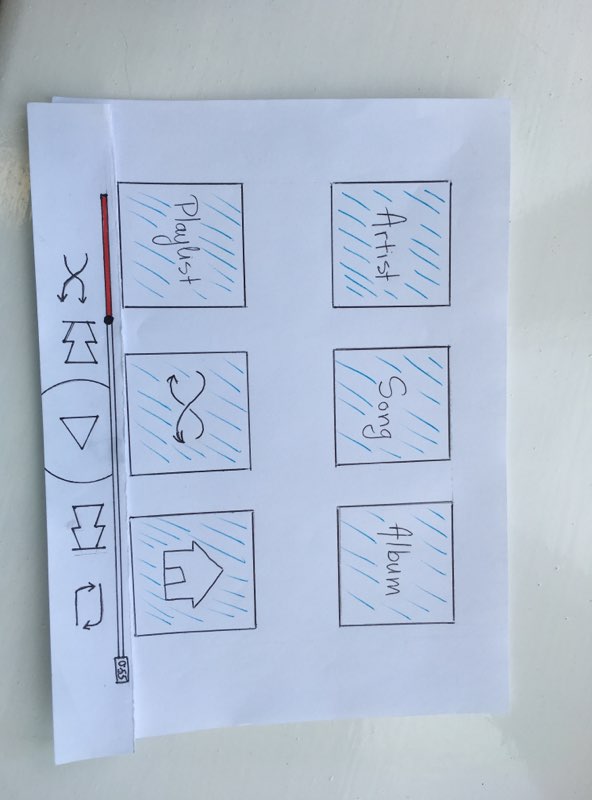 Artist
Song
Album
Playlist
0:55